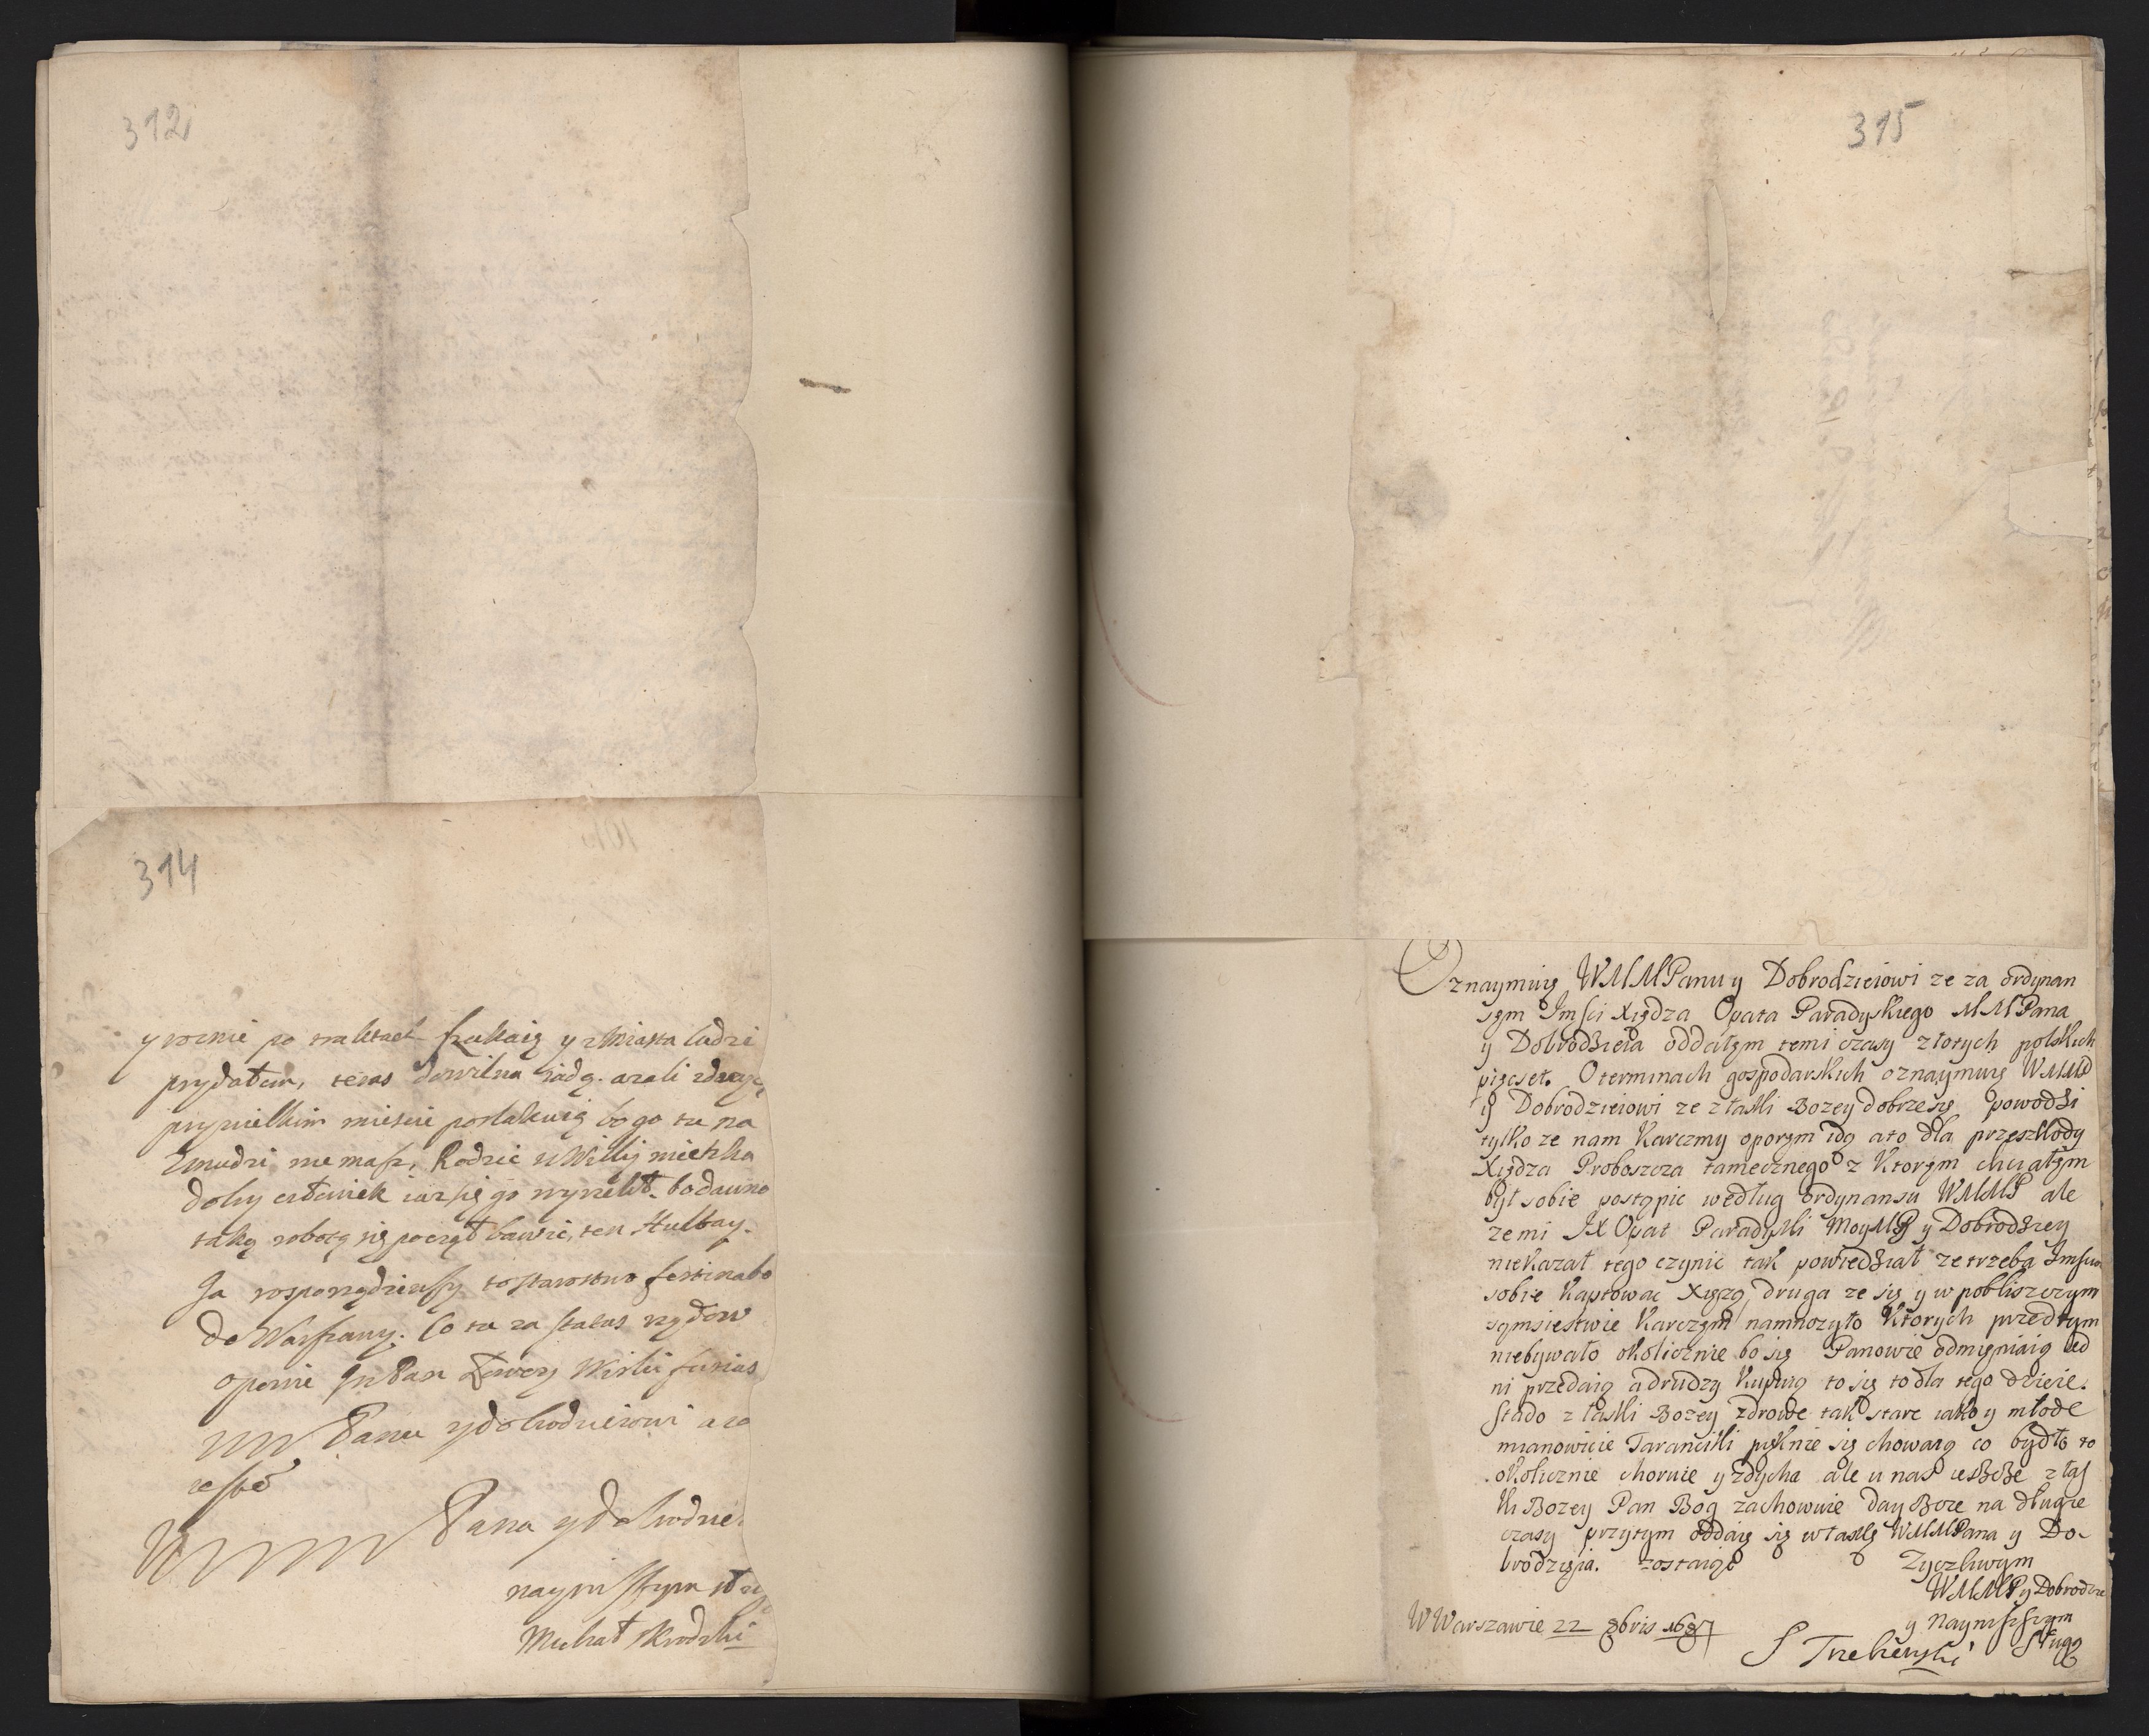 312
314
y rocznie po traktach szukaią y z Miasta ludzi
prydałem, teras do wilna iadę. azali zdarzę
przy wielkim mieście
bo go tu na
Zmudzi nie masz, Rodzic u Willij mieszka
dobry człowiek iuz się go wyrzekł. bo dawno
taką robotą się począł bawić, ten Hultay.
Ja rosporządziwszy to starostwo festinabo
Do Warszawy. Co tu za
opowie Jm Pan
WM Panu y dobrodzieiowi a za
Pana y dobrodzie
nayniższym słu
Michał Skrodzki
315
Oznaymuię WMMPanu y Dobrodzieiowi ze za ordynan
sem Jmsci Xiędza Opata Paradyskiego MMPana
y Dobrodzieia oddałęm temi czasy złotych polskich
pięcset. O terminach gospodarskich oznaymuię WMMP
y Dobrodzieiowi ze z łaski Bozey dobrze się powodzi
tylko ze nam Karczmy oporęm idą a to dla przeszkody
Xiędza Proboszcza tamecznego z Ktorym chciałęm
był sobie postąpic według ordynansu WMMP ale
ze mi JX Opat Paradyski Moy MP y Dobrodziey
niekazał tego czynic tak powiedział ze trzeba
sobie Kaptowac Xięzą, druga ze się y w pobliszczym
sęmsiestwie Karczęm namnozyło Ktorych przedtym
niebywało okolicznie bo się Panowie odmięniaią ied
ni przedaią a drudzy Kupuią to się to dla tego dzieie.
Stado z łaski Bozey zdrowe tak stare iako y młode
mianowicie Taranciki pięknie się chowaią co bydło to
okolicznie choruie y zdycha ale u nas ieszcze z łas
ki Bozey Pan Bog zachowuie day Boze na długie
czasy przytym oddaię się w łaskę WMMPana y Do-
brodzieia. zostaiąc Zyczliwym
WMMP y Dobrodzie
y Naynisszym
Sługą
W Warszawie 22 8bris 1687
S Trebienski